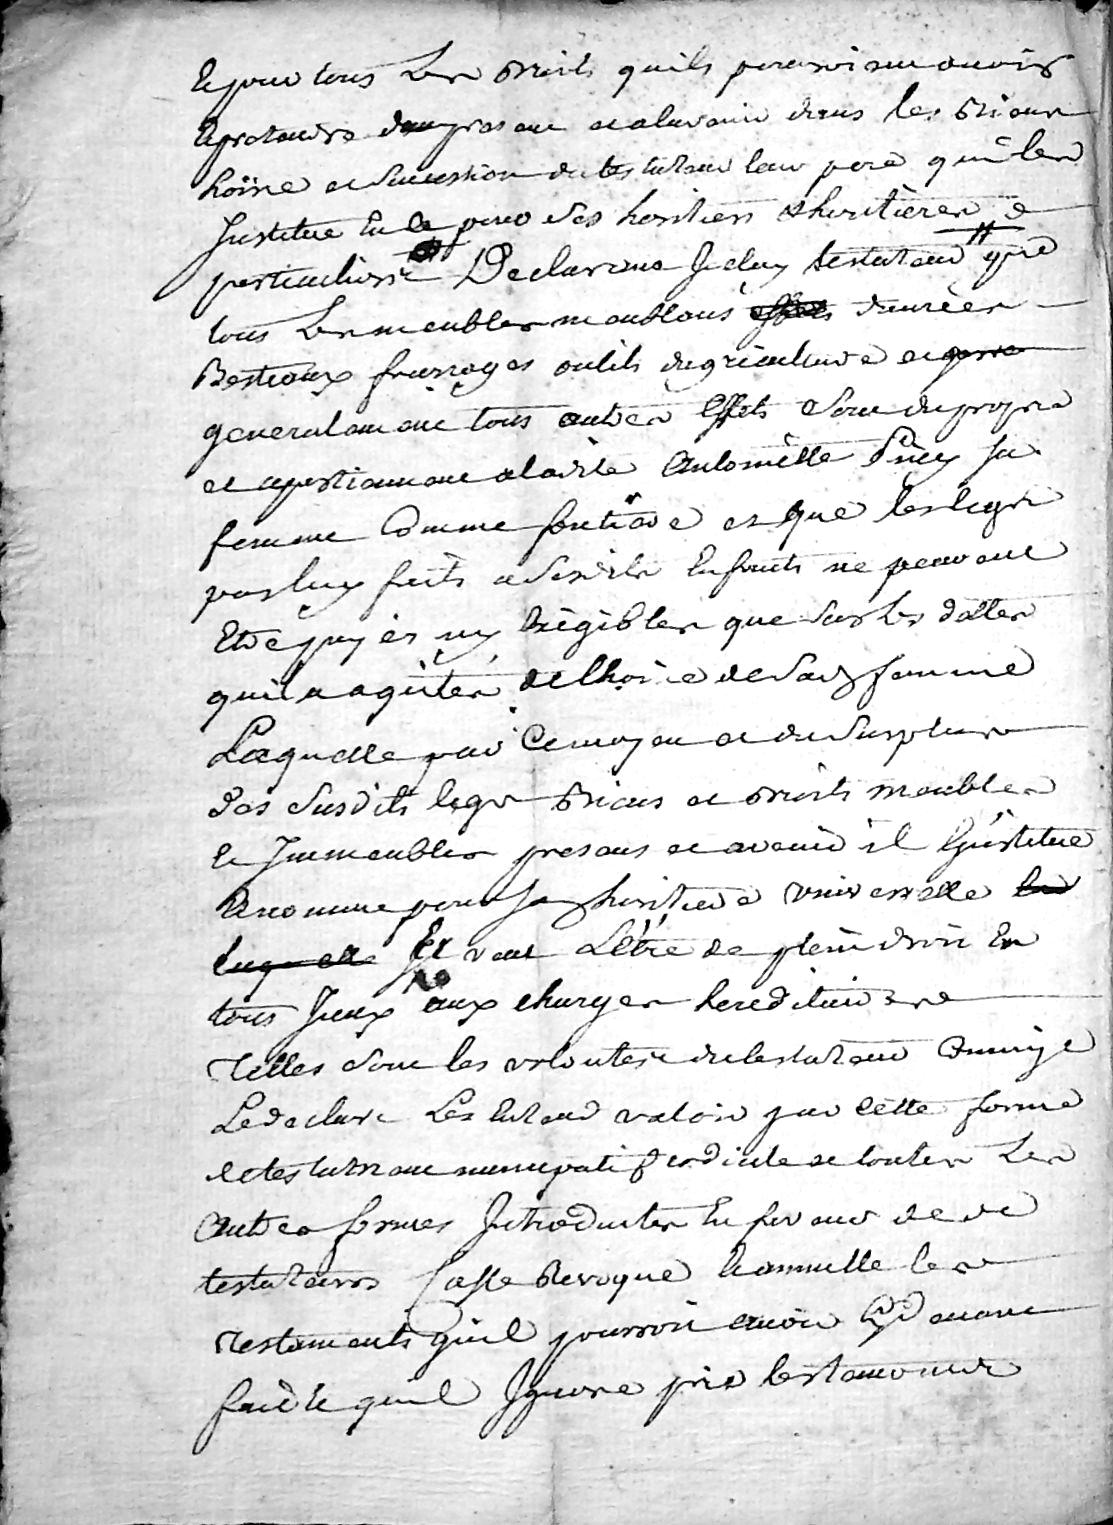 et pour tous les droits quils pourroient avoir
et pretandre deu presant et alavenir dans les biens
hoirie et sucession du testateur leur pere qui les
Institue en ce pour ses heritiers et heritieres
particuliers Declarant Iceluy testateur que
tous les meubles meublans danrées
Bestiaux fourrages outils dagriculture et
generalemant tous autres Effets sont du propre
et apartienant aladite Antoinette sa
femme comme et que les legs
par luy faits a sesdits Enfants ne peuvent
Etre payés ny Exigibles que sur les dottes
quil a de lhoirie de sad femme
Laquelle par ce moyen et du surplus
des susdits legs Biens et droits meubles
et Immeubles presans et avenir il Institue
et nomme pour sa heritiere universelle la
laquelle Il veut Letre de plein droit En
tous Iceux aux charges hereditaires
Telles sont les volontés du testateur
Le declare Les entand valoir par cette forme
de testamant nuncupatif codicile et toutes Les
autres formes Introduites En faveur de
testateurs Casse Revoque et annulle les
testaments quil pourroit avoir Cy devant
fait et quil Ignore pris les temoins